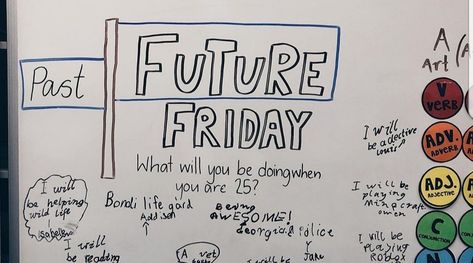 Past
FUTURE
FRIDAY
What will you be doing when
you are 25?
I will
be helping
wild life
Isabella
Bondi life gard
Addison
Being
AWESOME!
Georgia
Police
Jake
I will
be reading
A vet
I will be
I will
be a detective
Louis
I will be
playing
Minecraft
owen
I will be
playing
Roblox
A
Art
V
VERB
ADV.
ADVERB
ADJ.
ADJECTIVE
C
CONJUNCTION
N